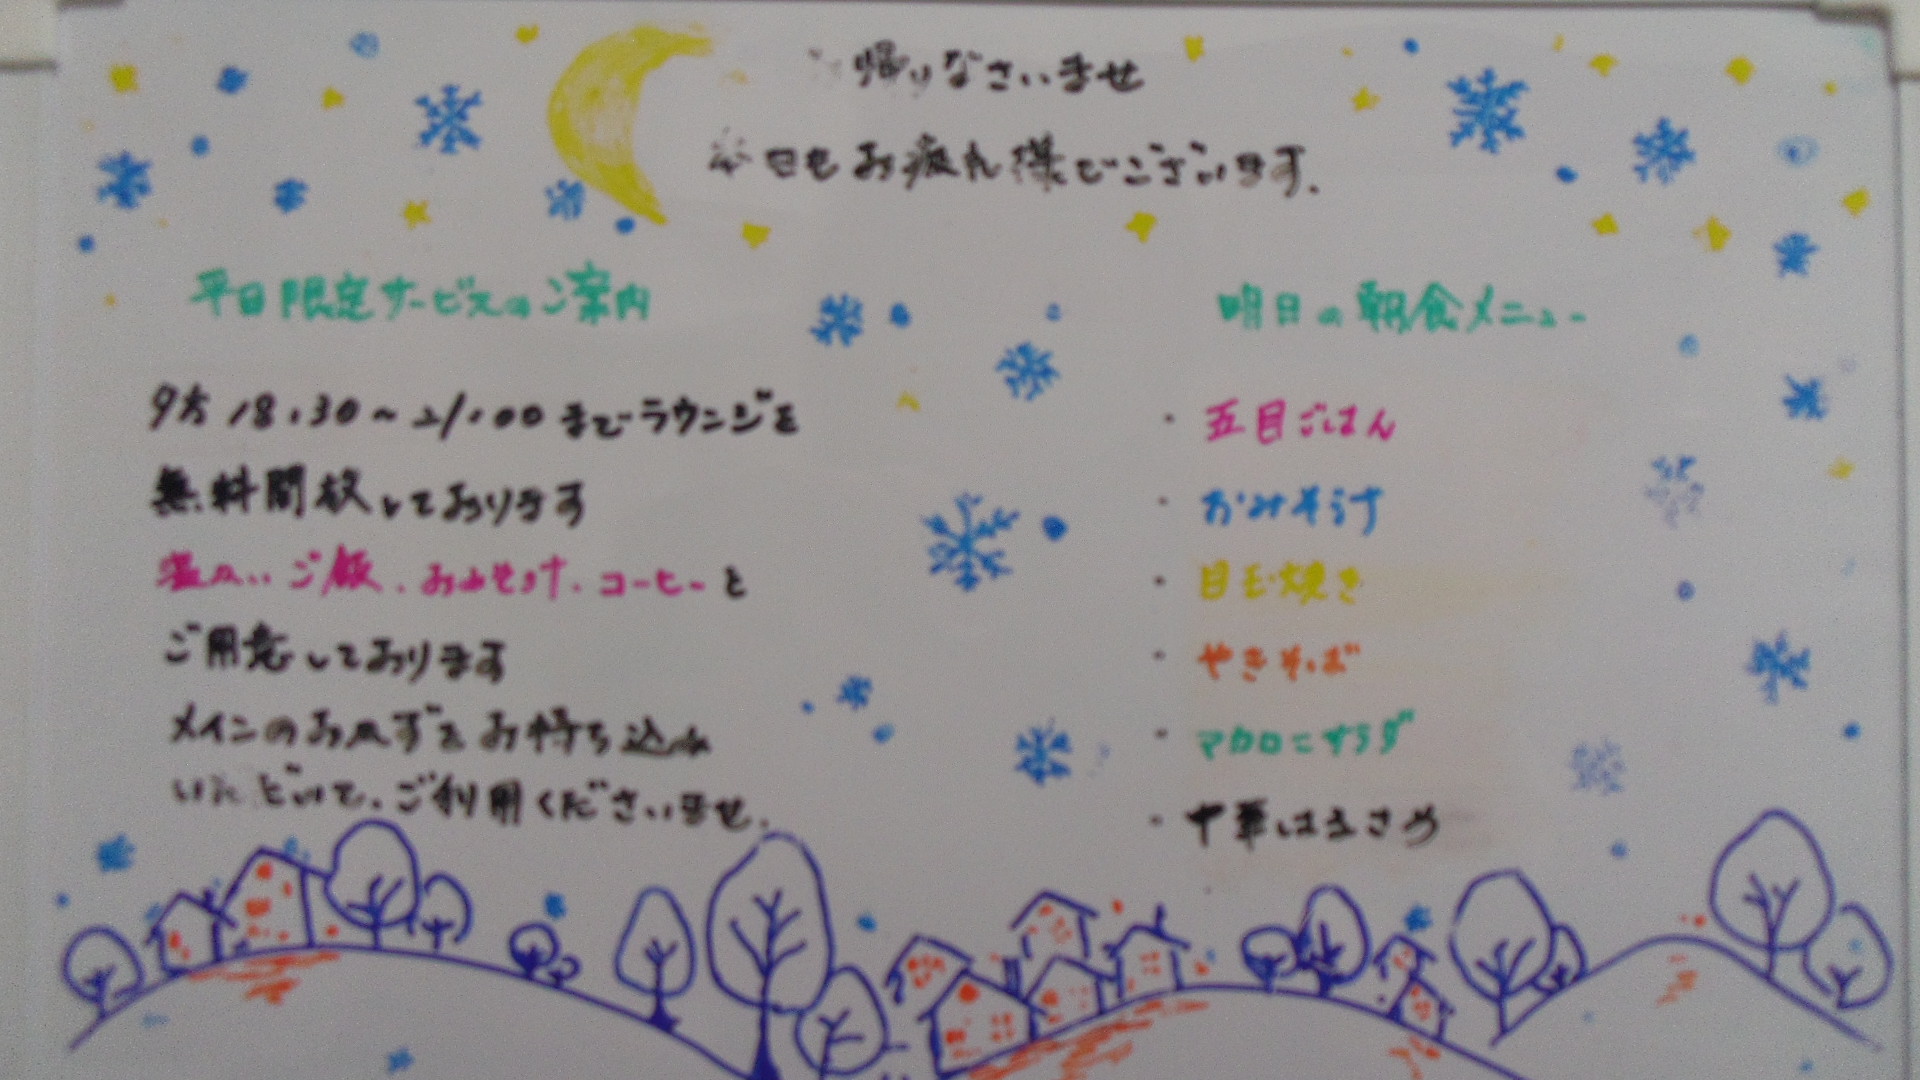 帰りなさいませ
本日もお疲れ様でございます.
平日限定サービスのご案内
夕方 18:30~21:00までラウンジを
無料開放しております
温かいご飯、おみそ汁、コーヒーと
ご用意しております
メインのおかずをお持ち込み
いただいて、ご利用くださいませ.
明日の朝食メニュー
・五目ごはん
・おみそ汁
・目玉焼き
・やきそば
・マカロニサラダ
・中華はるさめ